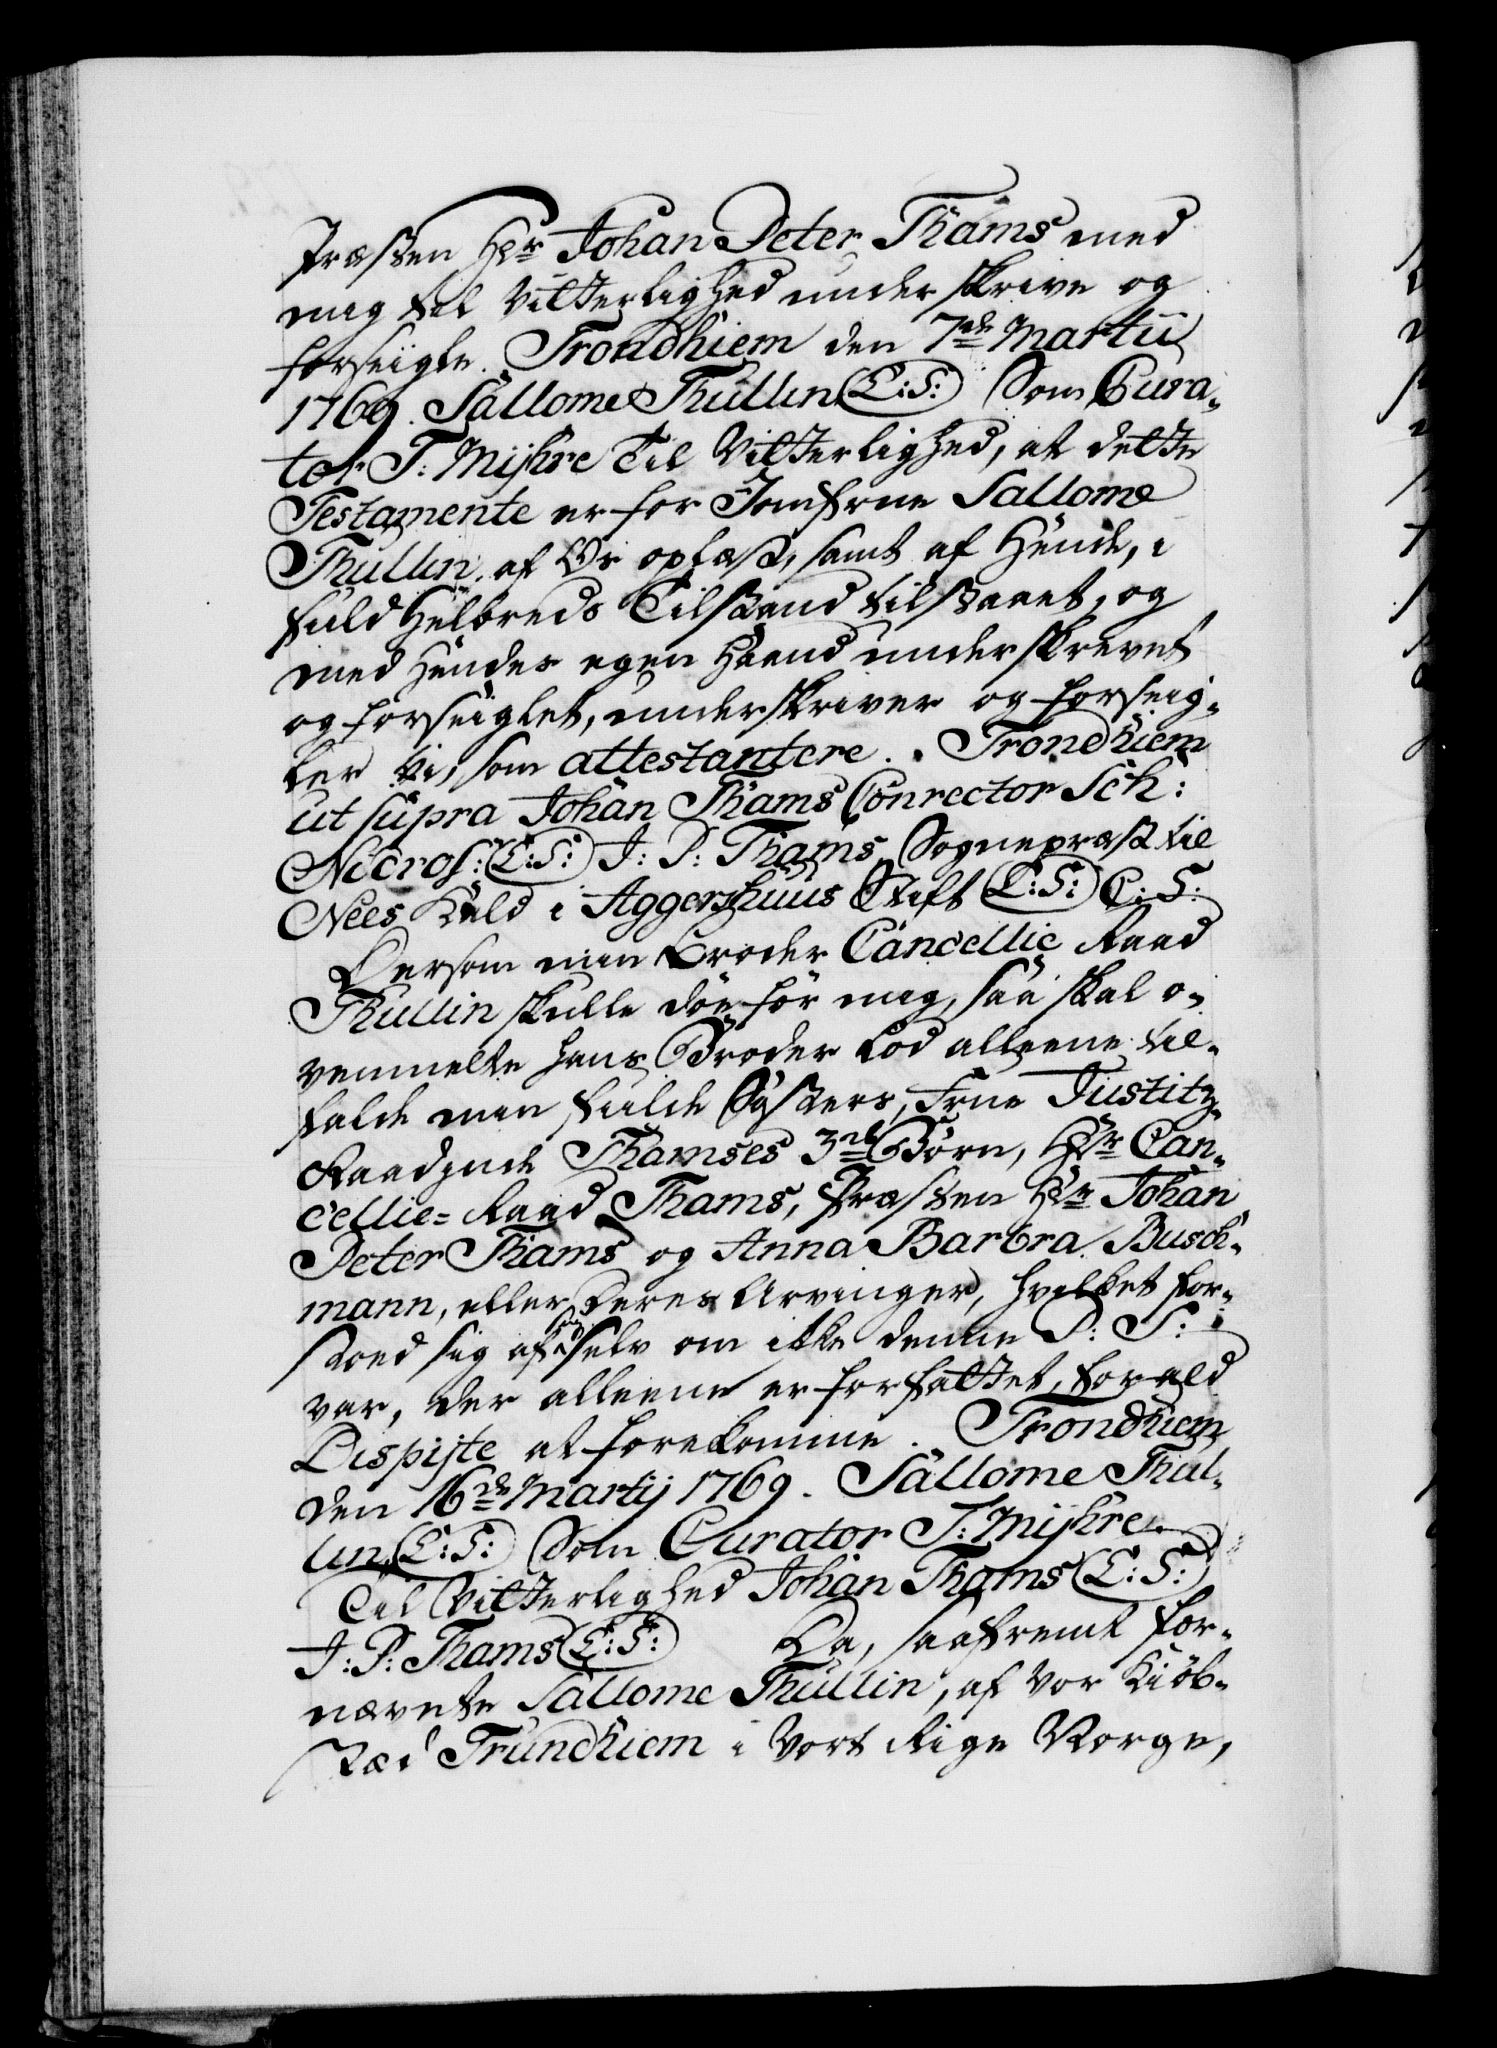 Præsten Hr Johan Peter Thams med
mig til Vitterlighed underskrive og
forseigle. Trondhiem den 7de Martii
1769. Sallome Thullin (L:S:) Som Cura-
tor T: Myhre Til Vitterlighed, at dette
Testamente er for Jomfrue Sallome
Thullin af Os oplæst, samt af Hende, i
fuld Helbreds Tilstand tilstaaet, og
med Hendes egen Haand underskrevet
og forseiglet, underskriver og forseig-
ler Vi, som attestantere. Trondhiem
ut supra Johan Thams Conrector Sch:
Nidros: (L:S:) J: P: Thams Sognepræst til
Nees Kald i Aggershuus Stift (L:S:) P: S:
Dersom min Broder Cancellie Raad
Thullin skulle döe för mig, saa skal o-
venmelte hans Broder Lod alleene til-
falde min fulde Systers, Frue Justitz-
Raadinde Thamses 3de Börn, Hr Can-
cellie-Raad Thams, Præsten Hr Johan
Peter Thams og Anna Barbra Busch-
mann, eller deres Arvinger, hvilket for-
stoed sig af sig Selv om ikke denne P: S:
var, der alleene er forfattet, for ald
Dispüte at forekomme. Trondhiem
den 16de Martij 1769. Sallome Thul-
lin (L:S:) Som Curator T: Myhre
Til Vitterlighed Johan Thams (L:S:)
J: P: Thams (L:S:) Da, saafremt for-
nævnte Sallome Thullin, af Vor Kiöb-
stæd Trundhiem i Vort Rige Norge,